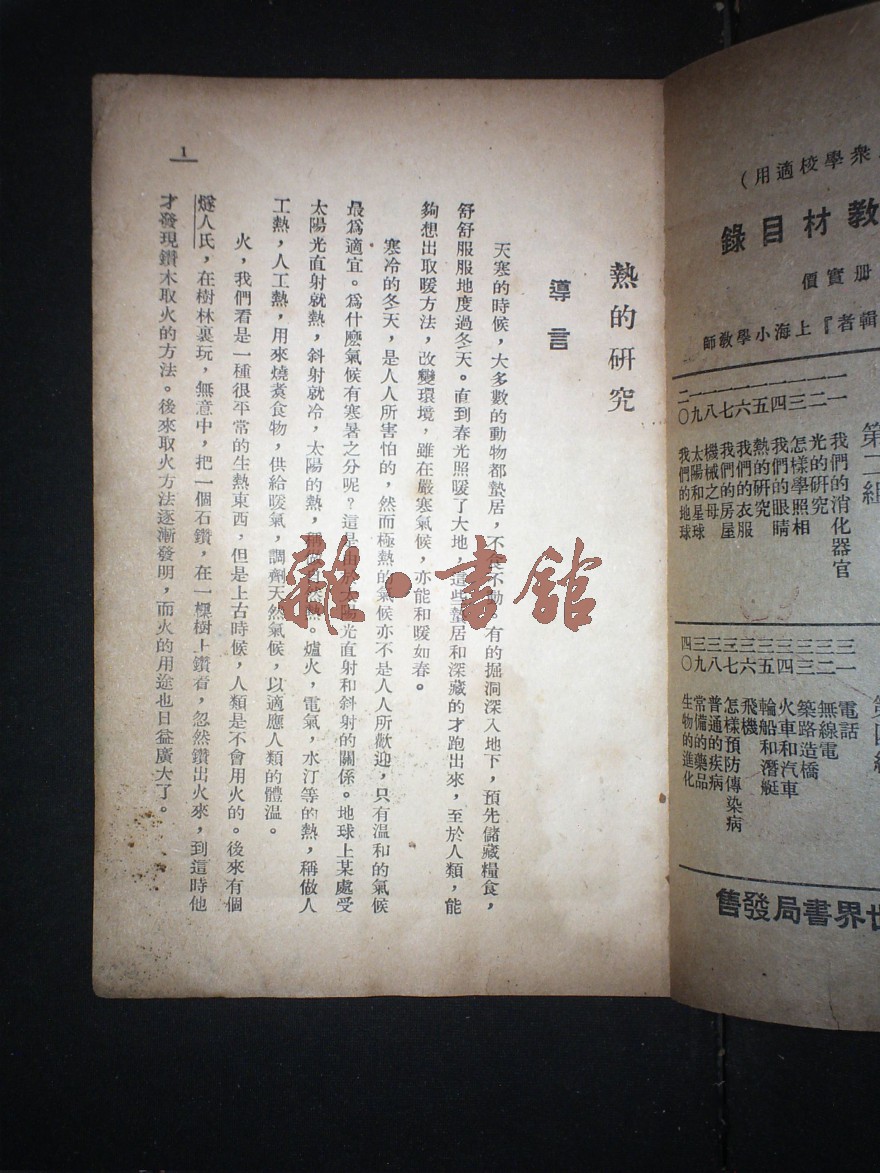 衆學校適用)
教材目錄
册實價
輯者『上海小學教師
第二組
一一 我們的消化器官
一二 光的研究
一三 怎樣學照相
一四 我們的眼睛
一五 熱的研究
一六 我們的衣服
一七 我們的房屋
一八 機械之母
一九 太陽和星球
二〇 我們的地球
第四組
三一 電話
三二 無線電
三三 築路造橋
三四 火車和汽車
三五 輪船和潛艇
三六 飛機
三七 怎樣預防傳染病
三八 普通的疾病
三九 常備的藥品
四〇 生物的進化
世界書局發售
熱的研究
導言
天寒的時候，大多數的動物都蟄居，不食不動。有的掘洞深入地下，預先儲藏糧食，
舒舒服服地度過冬天。直到春光照暖了大地，這些蟄居和深藏的才跑出來，至於人類，能
夠想出取暖方法，改變環境，雖在嚴寒氣候，亦能和暖如春。
寒冷的冬天，是人人所害怕的，然而極熱的氣候亦不是人人所歡迎，只有溫和的氣候
最爲適宜。爲什麽氣候有寒暑之分呢？這是由於太陽光直射和斜射的關係。地球上某處受
太陽光直射就熱，斜射就冷，太陽的熱，稱做自然熱。爐火，電氣，水汀等的熱，稱做人
工熱，人工熱，用來燒煮食物，供給暖氣，調劑天然氣候，以適應人類的體溫。
火，我們看是一種很平常的生熱東西，但是上古時候，人類是不會用火的。後來有個
燧人氏，在樹林裏玩，無意中，把一個石鑽，在一棵樹上鑽着，忽然鑽出火來，到這時他
才發現鑽木取火的方法。後來取火方法逐漸發明，而火的用途也日益廣大了。
1
雜·書館